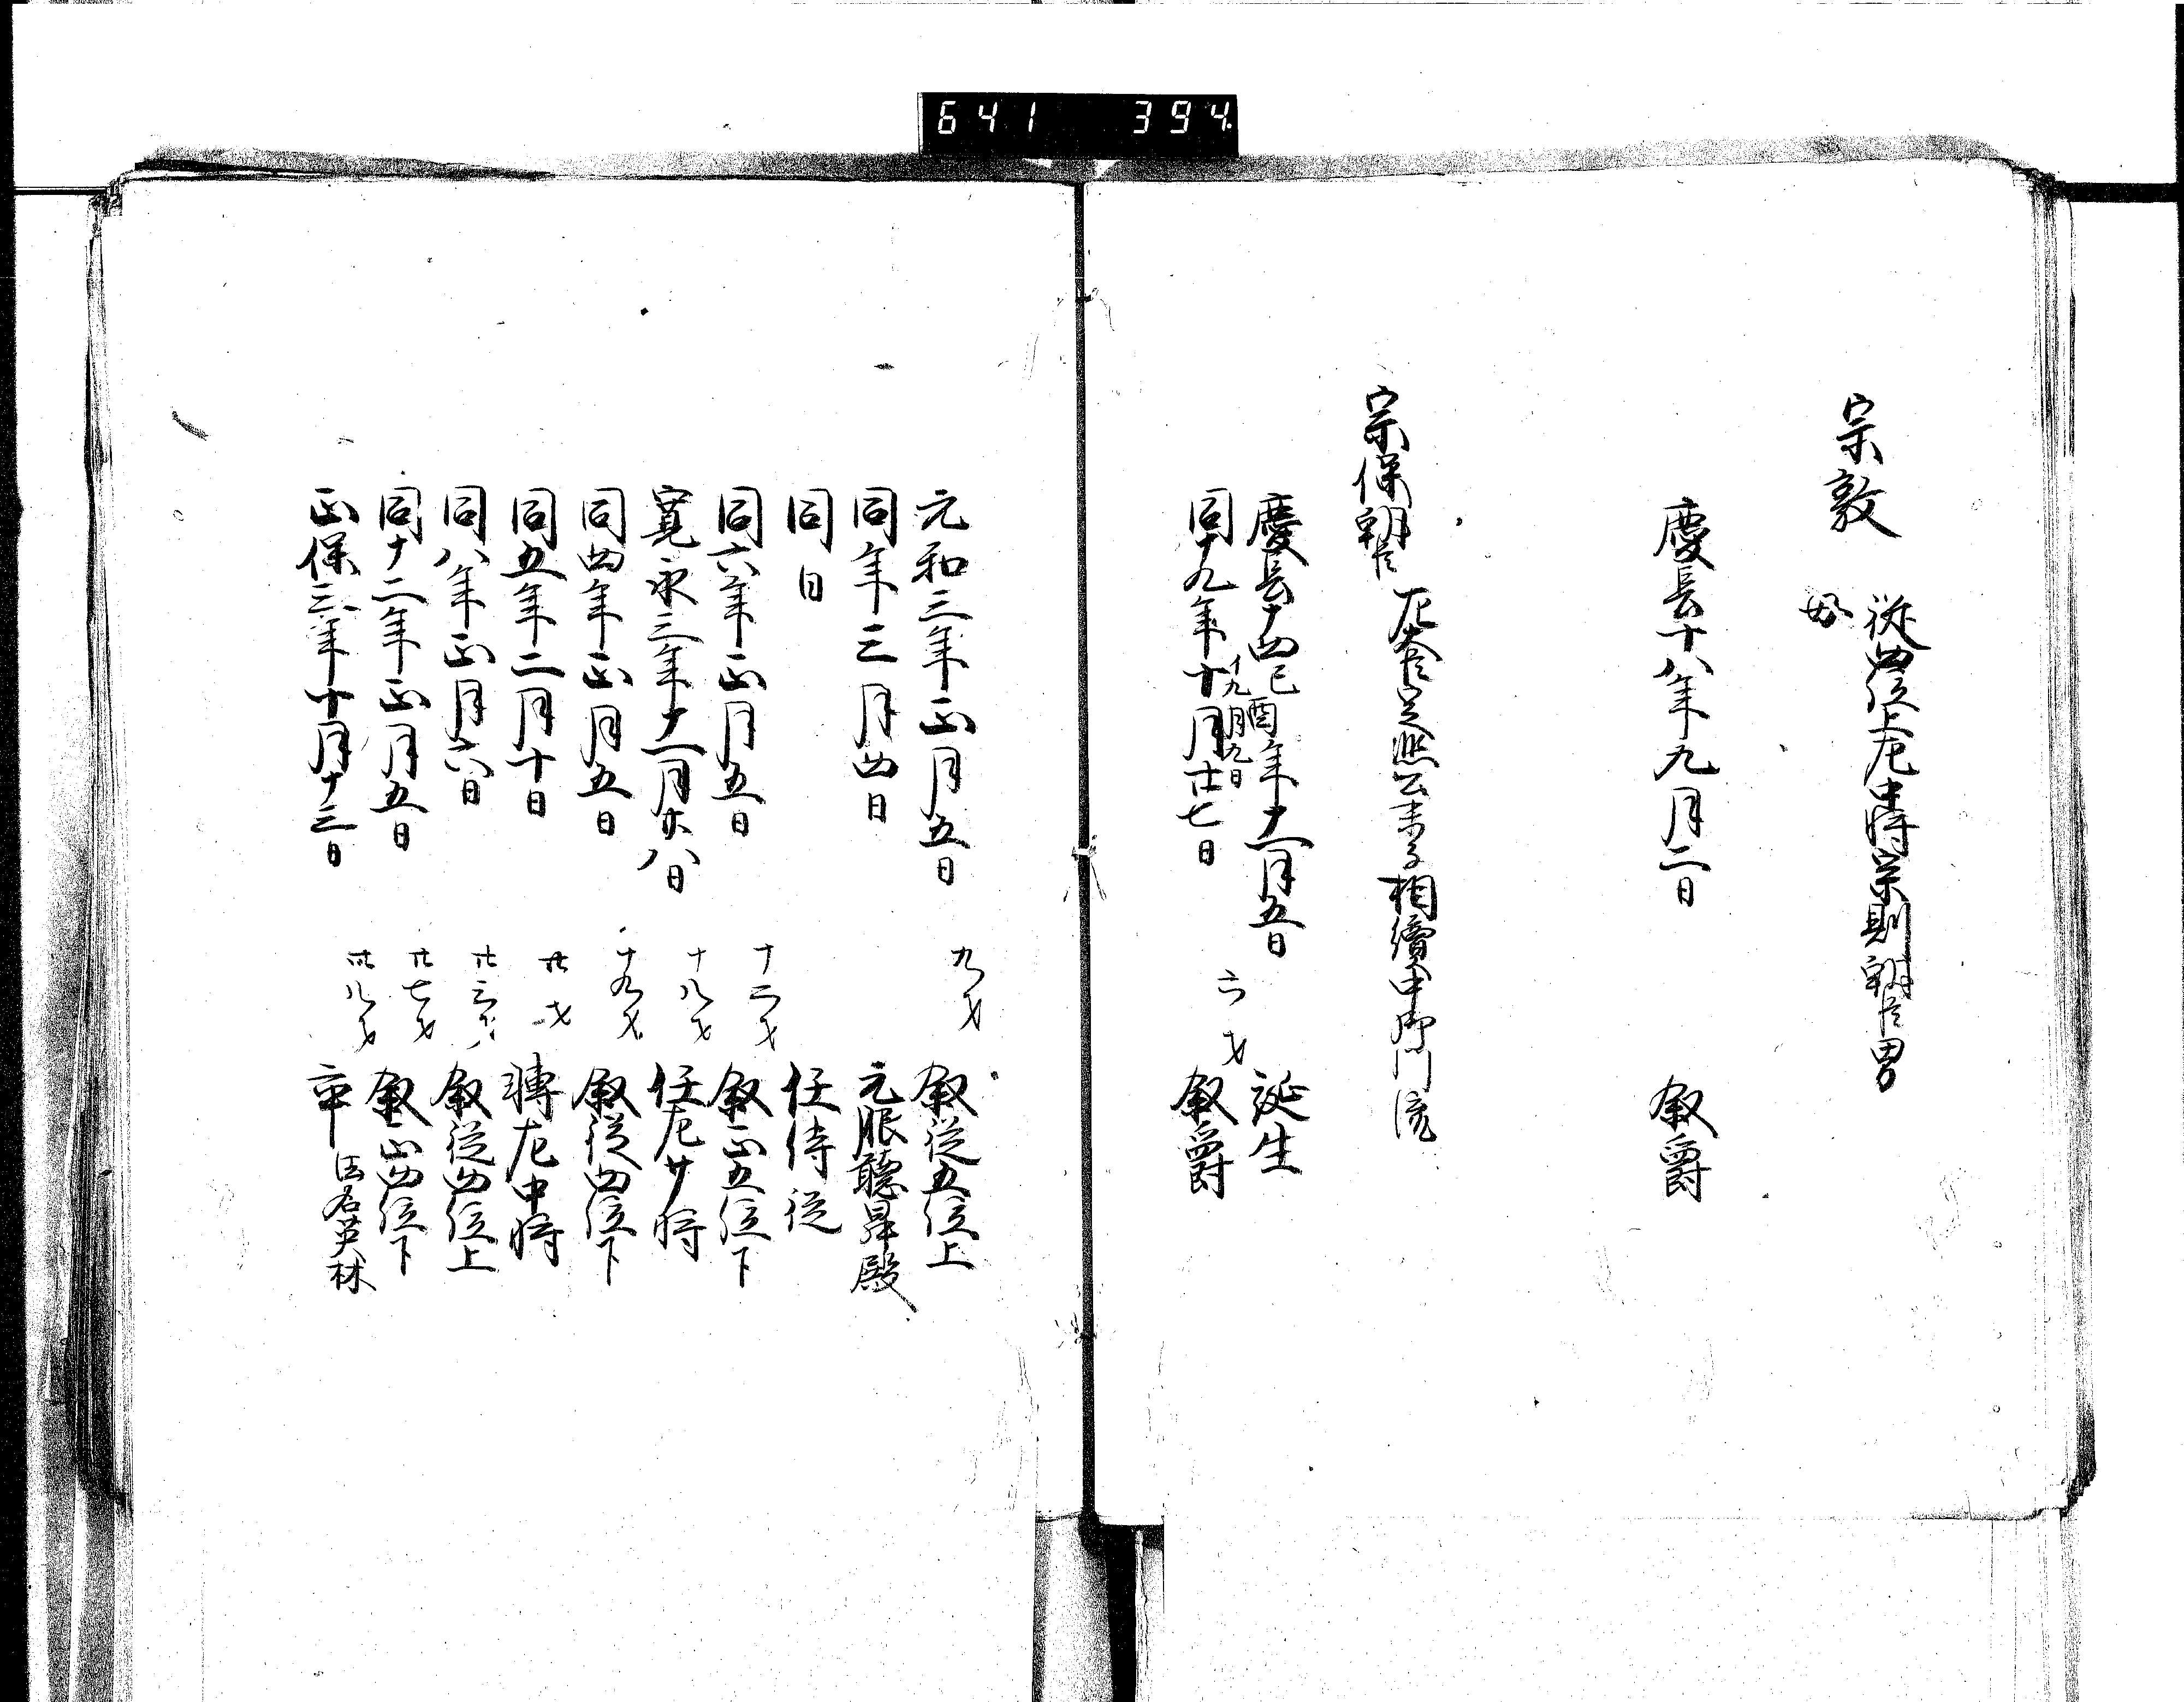 641 394
宗敦
従四位上左中将宗則朝臣男
母
慶長十八年九月二日 叙爵
宗保朝臣
左大臣定熈公末子相續中御門流
慶長十四己酉年十一月五日 誕生
イ九月九日
同十九年十月廿七日 六才 叙爵
元和三年正月五日 九才 叙従五位上
同年三月四日 元服聴昇殿
同日 任侍従
同六年正月五日 十二才 叙正五位下
寛永三年十一月廿八日 十八才 任左少将
同四年正月五日 十九才 叙従四位下
同五年二月十日 廿才 轉左中将
同八年正月六日 廿三才 叙従四位上
同十二年正月五日 廿七才 叙正四位下
正保三年十月十三日 卅八才 卒 法名英林